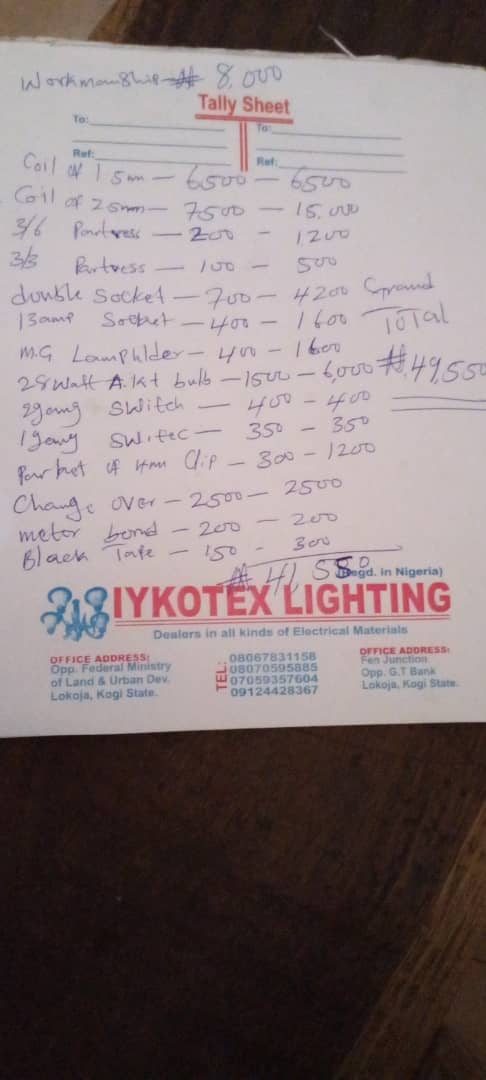 Workmanship ₦ 8,000
Tally Sheet
To: To:
Ref: Ref:
Coil of 1.5mm — 6500 — 6500
Coil of 2.5mm — 7500 — 15,000
3/6 Partress — 200 - 1200
3/3 Partress — 100 - 500
double Socket — 700 — 4200 Grand
13amp Socket — 400 - 1600 Total
M.G Lamphlder — 400 — 1600
28 watt A.kt bulb — 1500 — 6,000 ₦ 49,550
2gang Switch — 400 - 400
1gang Switec — 350 - 350
Parket of 4mm Clip — 300 - 1200
Change over — 2500 — 2500
meter bond — 200 — 200
Black Tape — 150 - 300
₦ 41,550
(Regd. in Nigeria)
IYKOTEX LIGHTING
Dealers in all kinds of Electrical Materials
OFFICE ADDRESS:
Opp. Federal Ministry
of Land & Urban Dev.
Lokoja, Kogi State.
TEL:
08067831158
08070595885
07059357604
09124428367
OFFICE ADDRESS:
Fen Junction
Opp. G.T Bank
Lokoja, Kogi State.